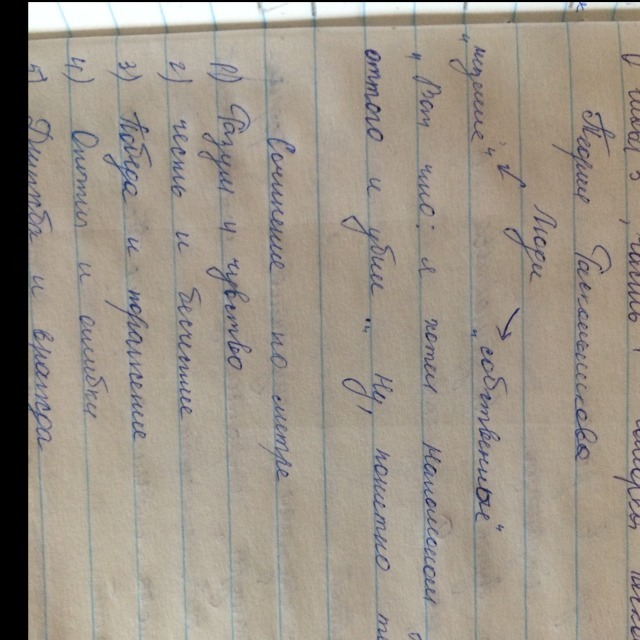 Теория Раскольникова
Люди
"низшие" "собственные"
"Вот что: я хотел Наполеоном
оттого и убил... Ну, понятно
Сочинение по литре
1) Разум и чувство
2) Честь и бесчестие
3) Победа и поражение
4) Опыт и ошибки
5) Дружба и вражда